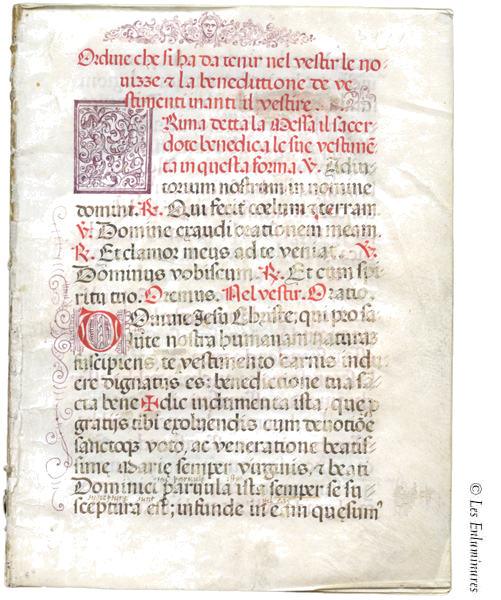 Ordine che si ha da tenir nel vestir le no-
vizze & la benedittione de ve-
stimenti inanti il vestire.
PRima detta la Messa il sacer-
dote benedica le sue vestimē
ta in questa forma. V. Adiu-
torium nostrum in nomine
domini. R. Qui fecit cœlum & terram.
V. Domine exaudi orationem meam.
R. Et clamor meus ad te veniat. V.
Dominus vobiscum. R. Et cum spi-
ritu tuo. Oremus. Nel vestir. Oratio.
DOmine Jesu Christe, qui pro sa-
lute nostra humanam naturaz
suscipiens, te vestimento carnis indu
ere dignatus es: benedictione tua sa-
cta bene✠dic indumenta ista, que p
gratijs tibi exolvendis cum devotiōe
sanctoqz voto, ac veneratione beatis-
sime Marie semper virginis, & beati
Dominici parvula ista semper se su
sceptura est; infunde in eam quesum'
© Les Enluminures